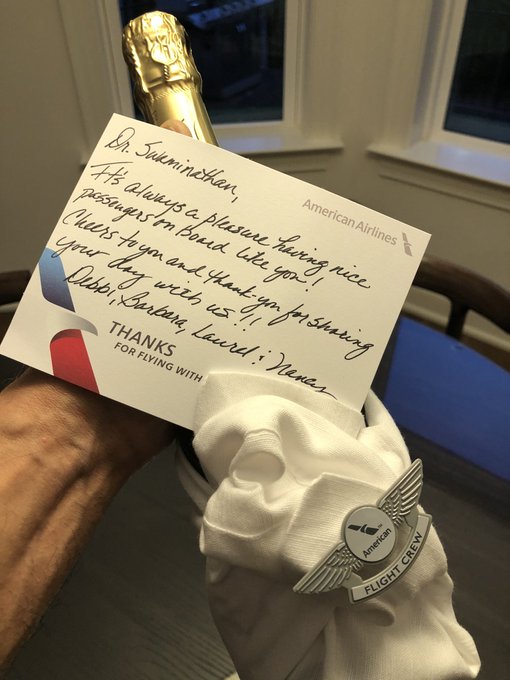 Dr. Swaminathan,
It's always a pleasure having nice
passengers on board like you!!
Cheers to you and thank you for sharing
your day with us!!!
Debbi, Barbara, Laurel & Nancy
American Airlines
THANKS
FOR FLYING WITH
American
FLIGHT CREW